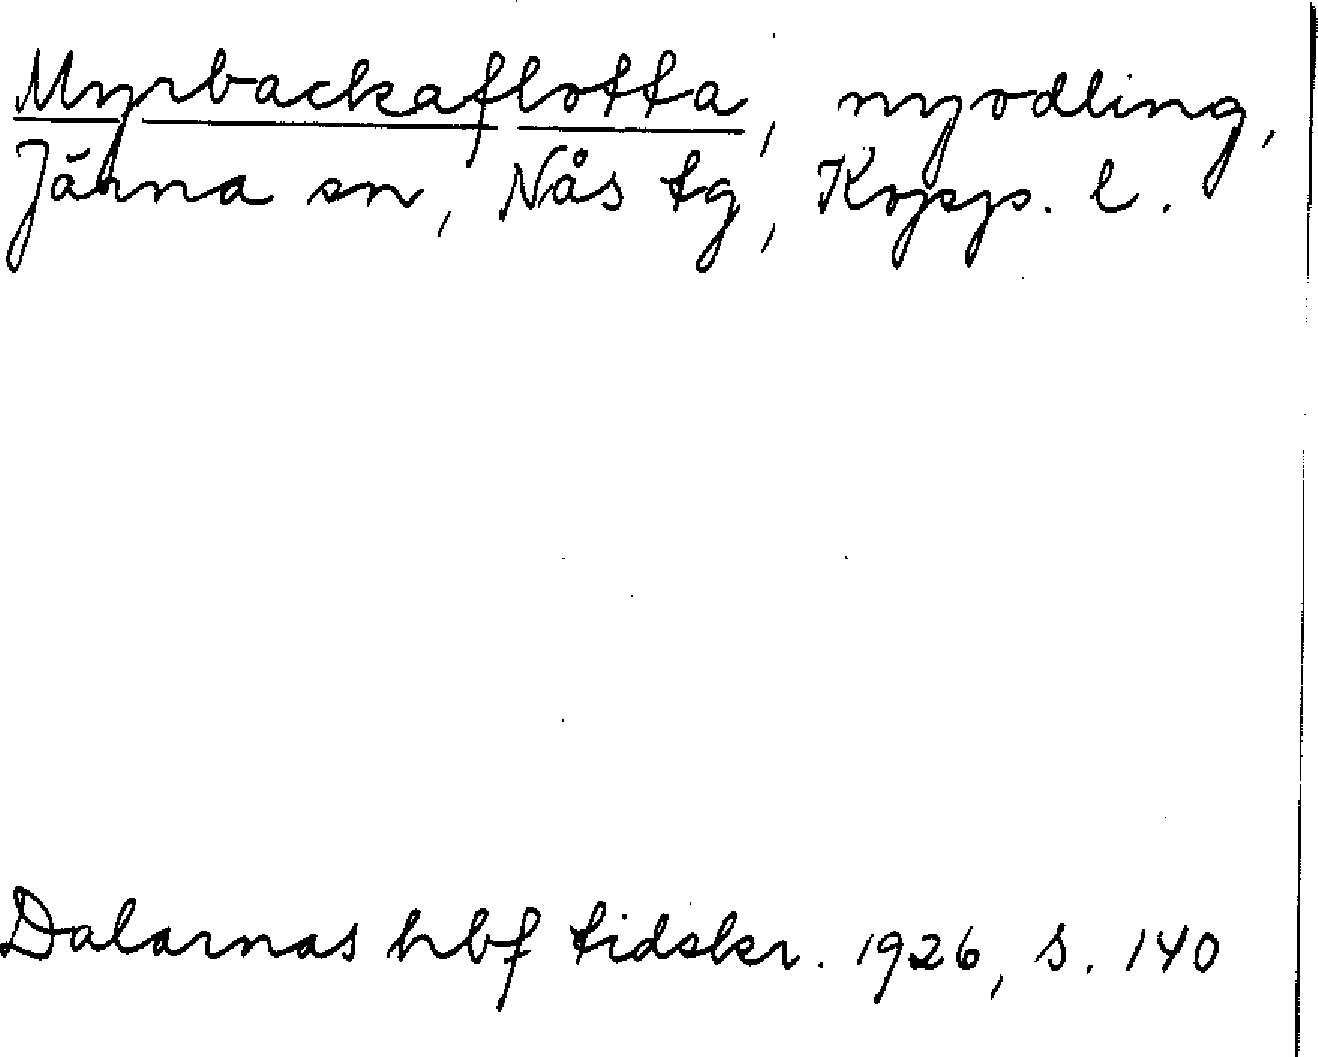 Myrbackaflotta, nyodling,
Järna sn, Nås tg, Kopp. l.
Dalarnas hbf tidskr. 1926, s. 140